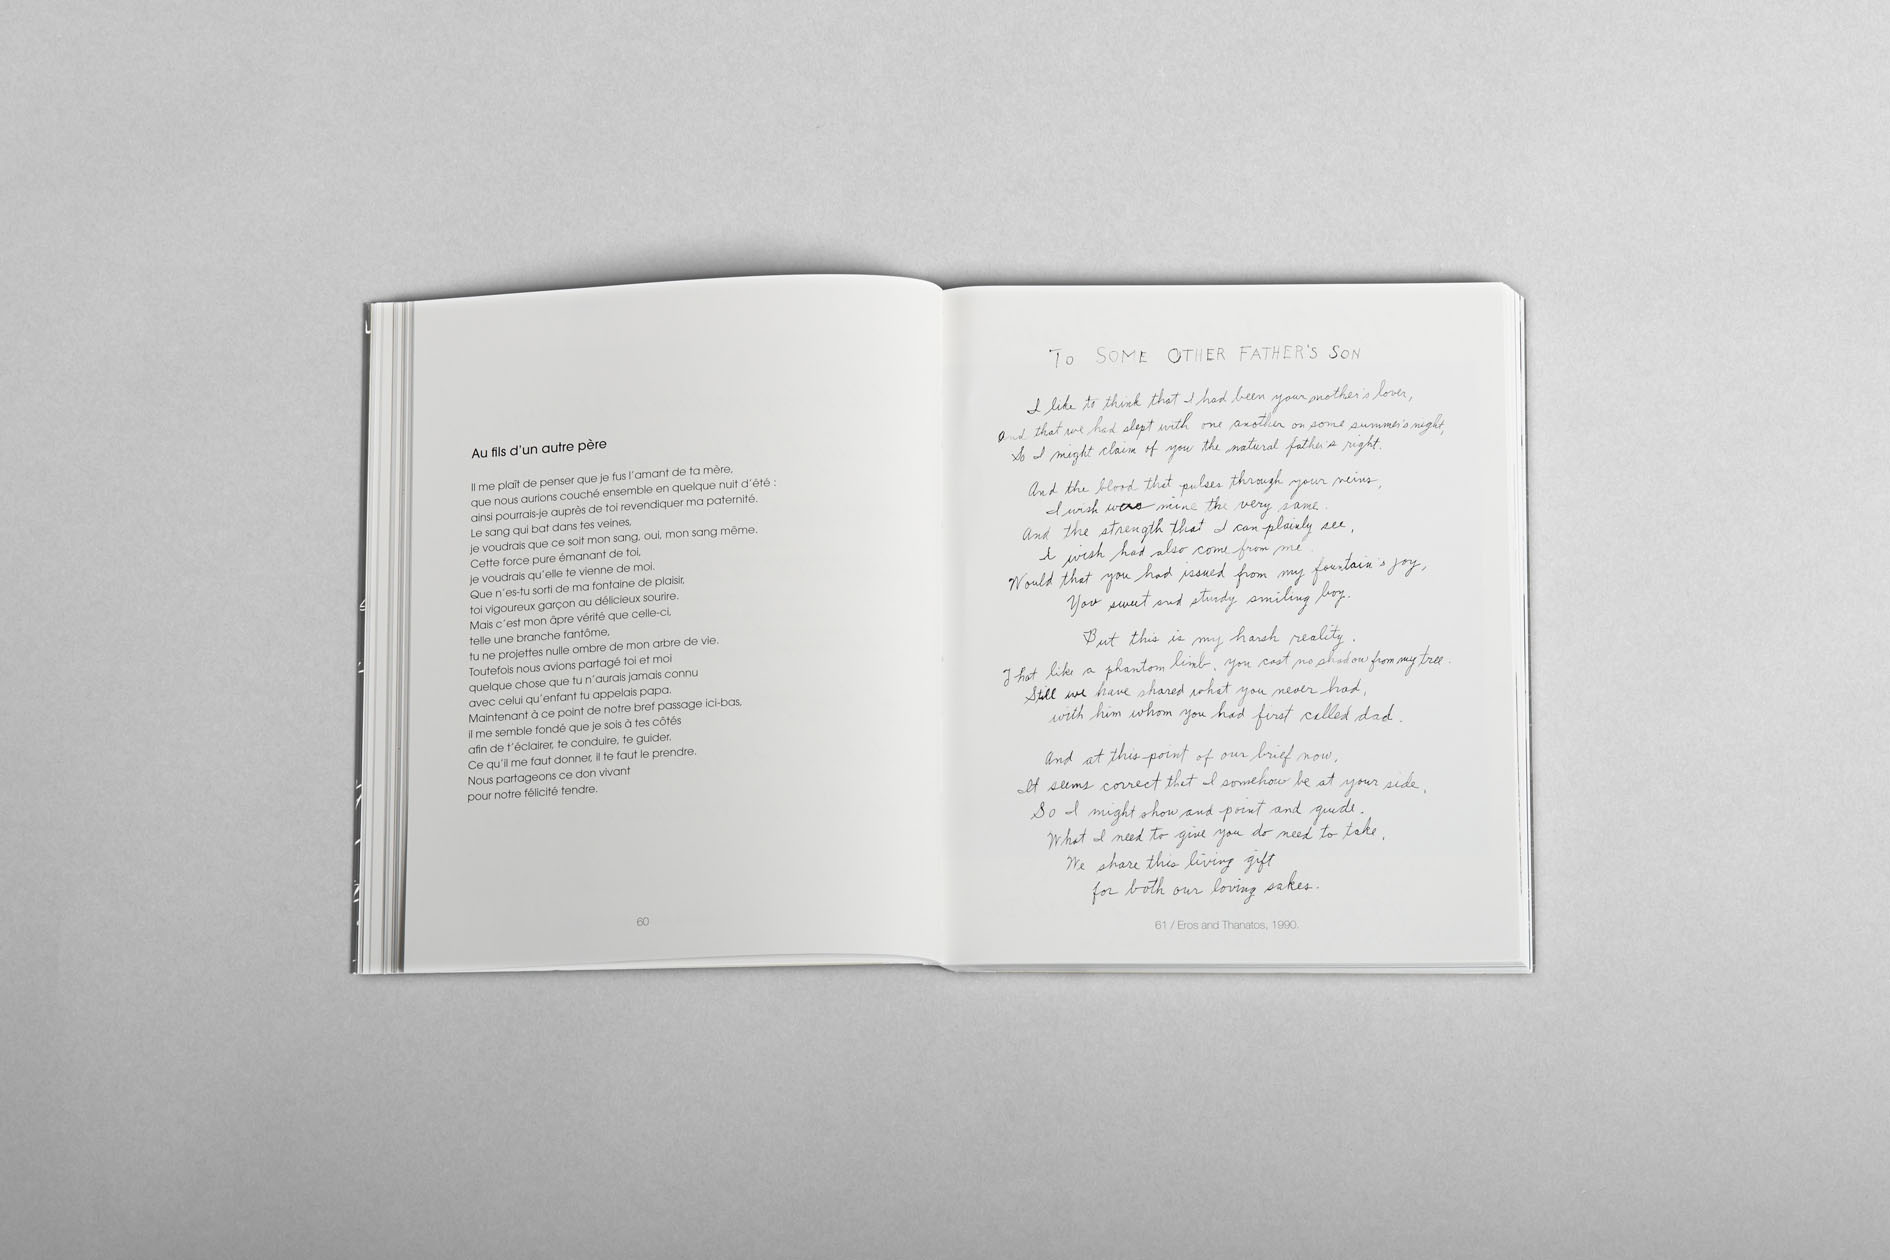 Au fils d'un autre père
Il me plaît de penser que je fus l'amant de ta mère,
que nous aurions couché ensemble en quelque nuit d'été :
ainsi pourrais-je auprès de toi revendiquer ma paternité.
Le sang qui bat dans tes veines,
je voudrais que ce soit mon sang, oui, mon sang même.
Cette force pure émanant de toi,
je voudrais qu'elle te vienne de moi.
Que n'es-tu sorti de ma fontaine de plaisir,
toi vigoureux garçon au délicieux sourire.
Mais c'est mon âpre vérité que celle-ci,
telle une branche fantôme,
tu ne projettes nulle ombre de mon arbre de vie.
Toutefois nous avions partagé toi et moi
quelque chose que tu n'aurais jamais connu
avec celui qu'enfant tu appelais papa.
Maintenant à ce point de notre bref passage ici-bas,
il me semble fondé que je sois à tes côtés
afin de t'éclairer, te conduire, te guider.
Ce qu'il me faut donner, il te faut le prendre.
Nous partageons ce don vivant
pour notre félicité tendre.
60
TO SOME OTHER FATHER'S SON
I like to think that I had been your mother's lover,
And that we had slept with one another on some summer's night,
So I might claim of you the natural father's right.
And the blood that pulses through your veins,
I wish were mine the very same.
And the strength that I can plainly see,
I wish had also come from me.
Would that you had issued from my fountain's joy,
You sweet and sturdy smiling boy.
But this is my harsh reality.
That like a phantom limb, you cast no shadow from my tree.
Still we have shared what you never had,
with him whom you had first called dad.
And at this point of our brief now,
It seems correct that I somehow be at your side,
So I might show and point and guide.
What I need to give you do need to take,
We share this living gift
for both our loving sakes.
61 / Eros and Thanatos, 1990.